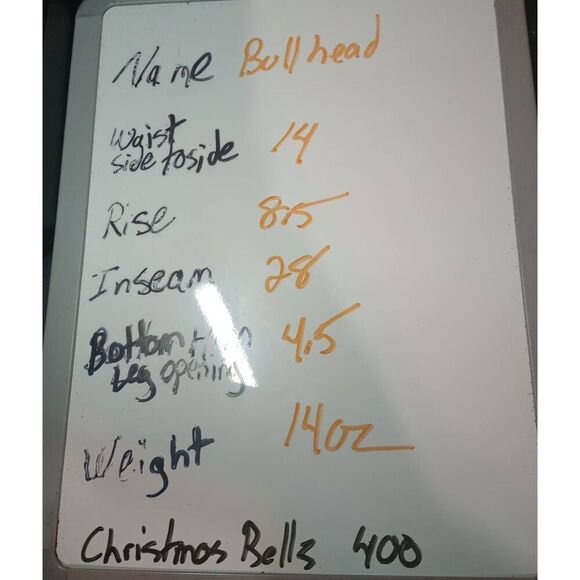 Name Bullhead
Waist
side toside 14
Rise 8.5
Inseam 28
Bottom 4.5
Leg opening
Weight 14oz
Christmas Bells 400